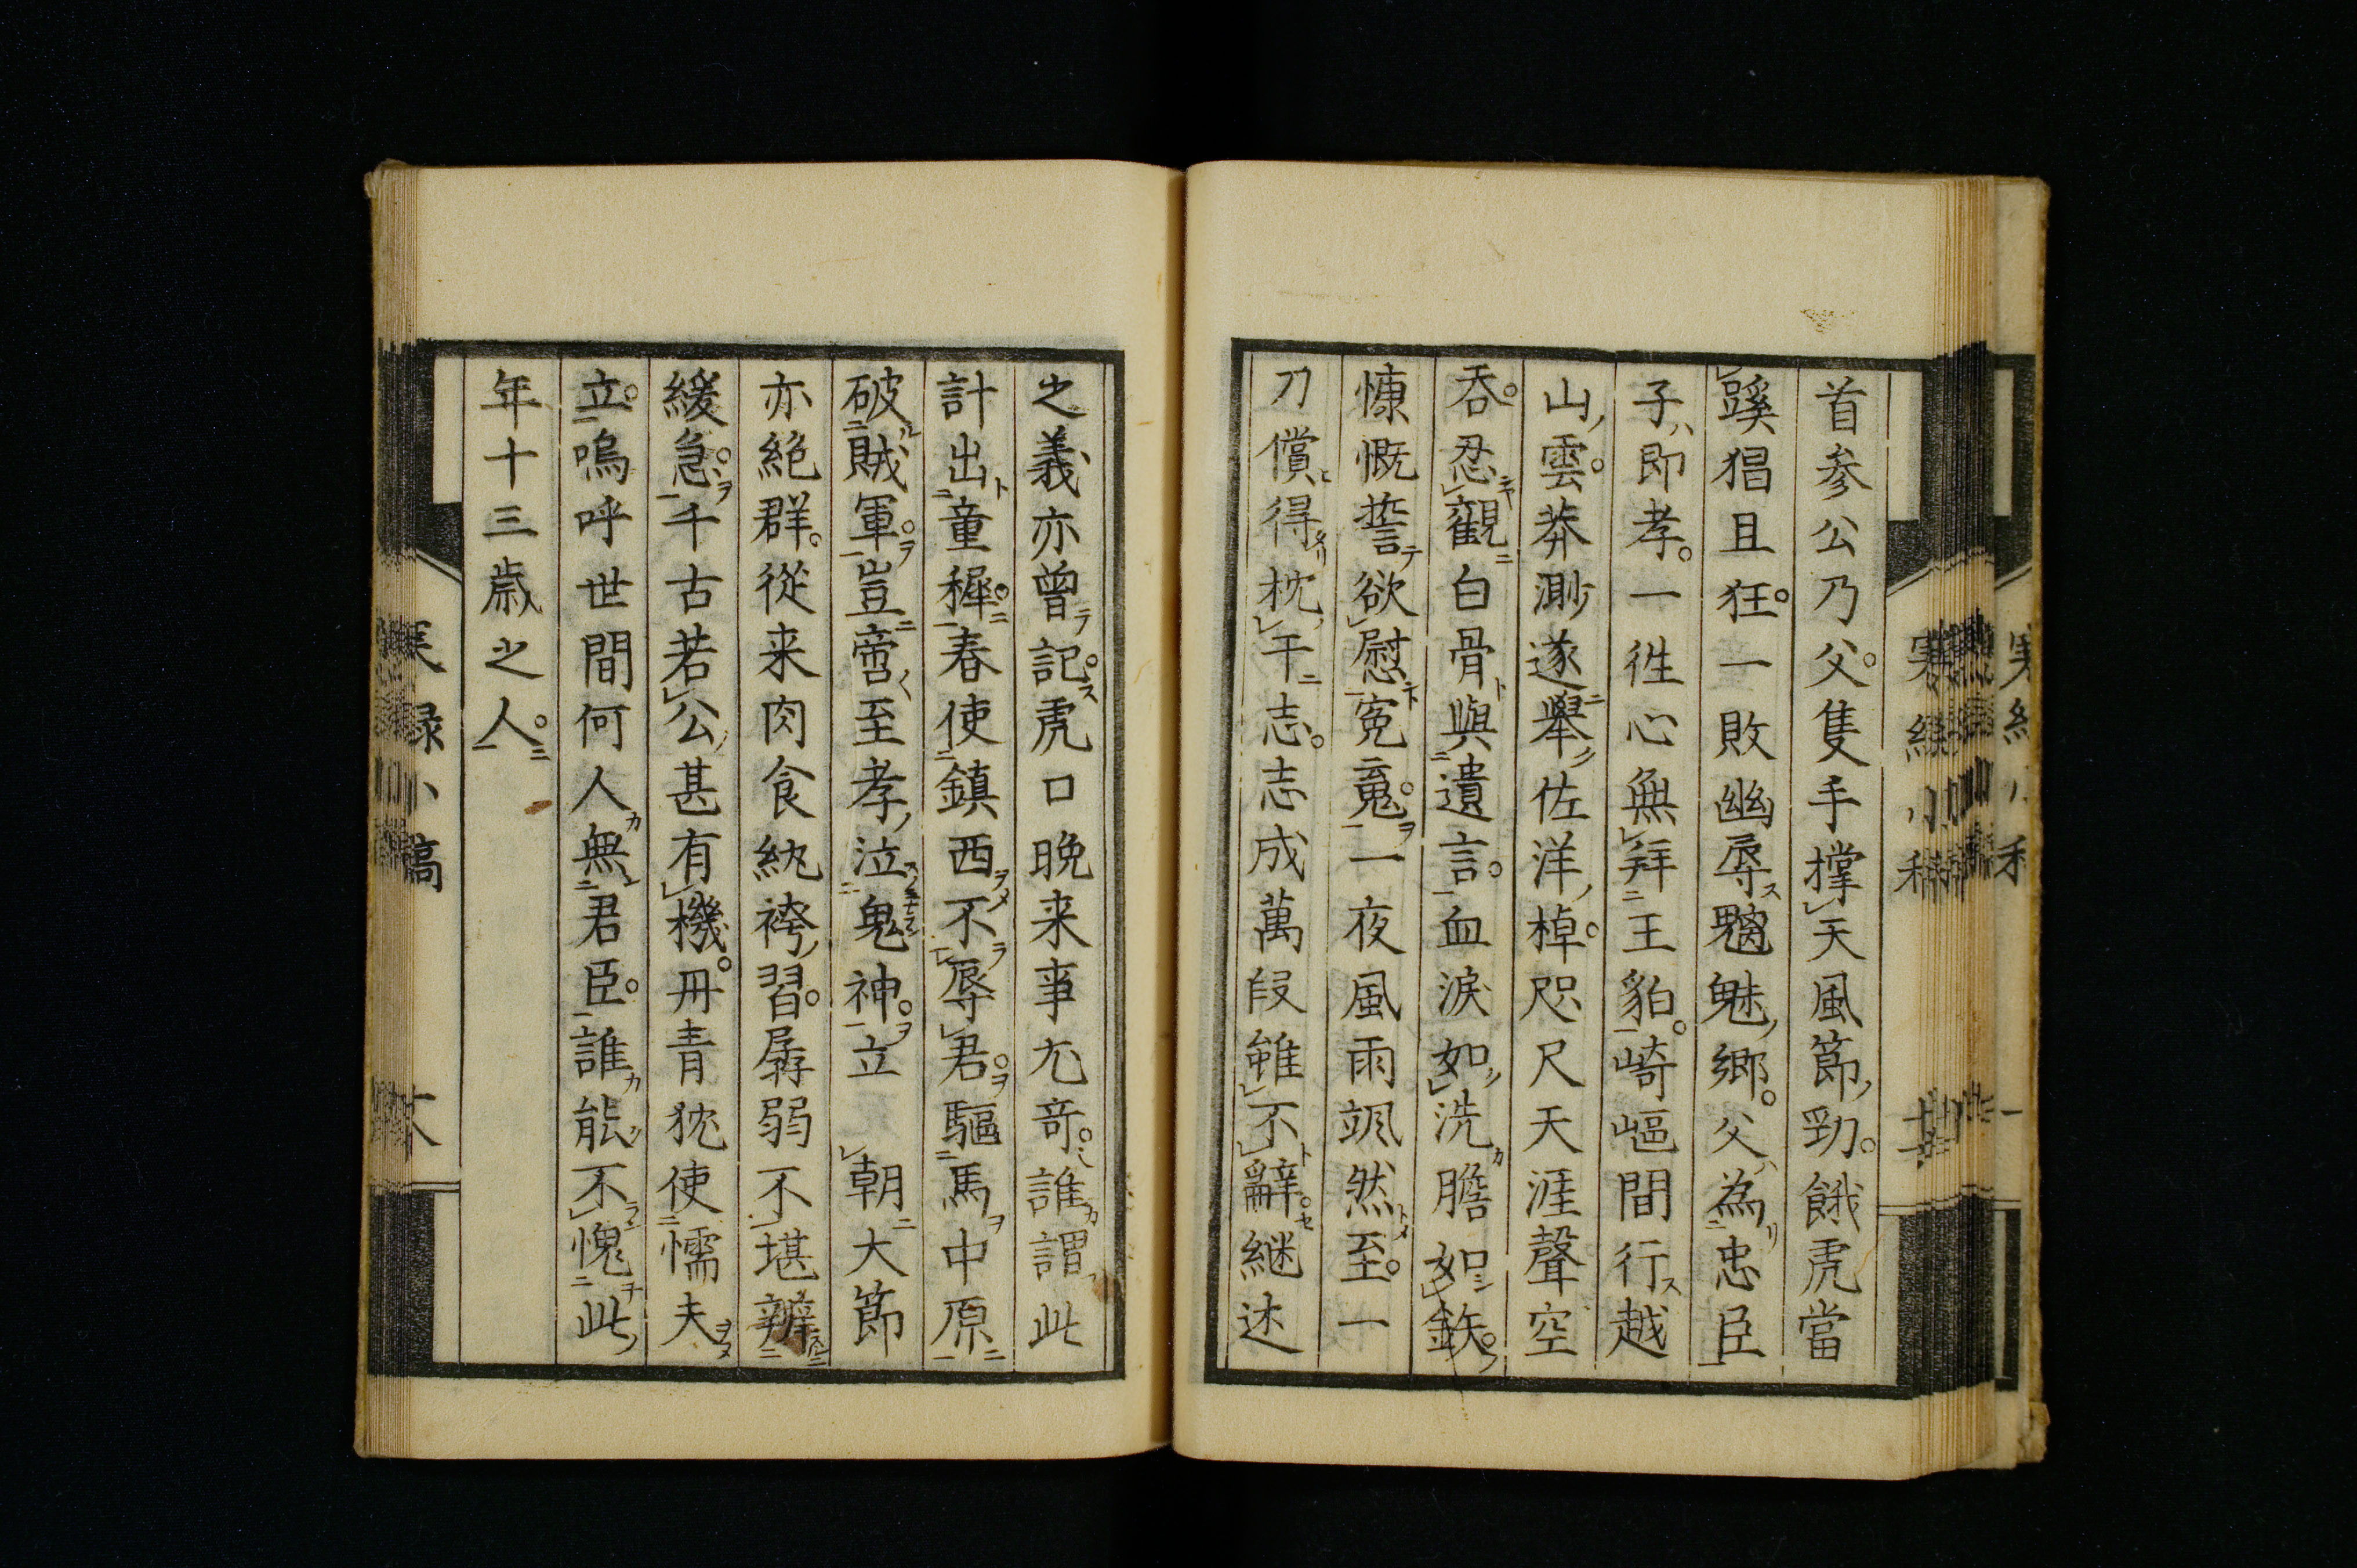 首参公乃父。隻手撑天風節勁。餓虎當
蹊猖且狂。一敗幽辱魑魅鄉。父為忠臣
子即孝。一徃心無拜王貂。崎嶇間行越
山雲。莽渺遂舉佐洋棹。咫尺天涯聲空
呑。忍觀白骨與遺言。血淚如洗膽如鉄。
慷慨誓欲慰寃䰟。一夜風雨颯然至。一
刀償得枕干志。志成萬段雖不辭。継述
之義亦曽記。虎口晩来事尤竒。誰謂此
計出童穉。春使鎮西不辱君。驅馬中原
破賊軍。豈啻至孝泣鬼神。立朝大節
亦絶群。從来肉食紈袴習。孱弱不堪辨
緩急。千古若公甚有機。丹青犹使懦夫
立。嗚呼世間何人無君臣。誰能不愧此
年十三歳之人。